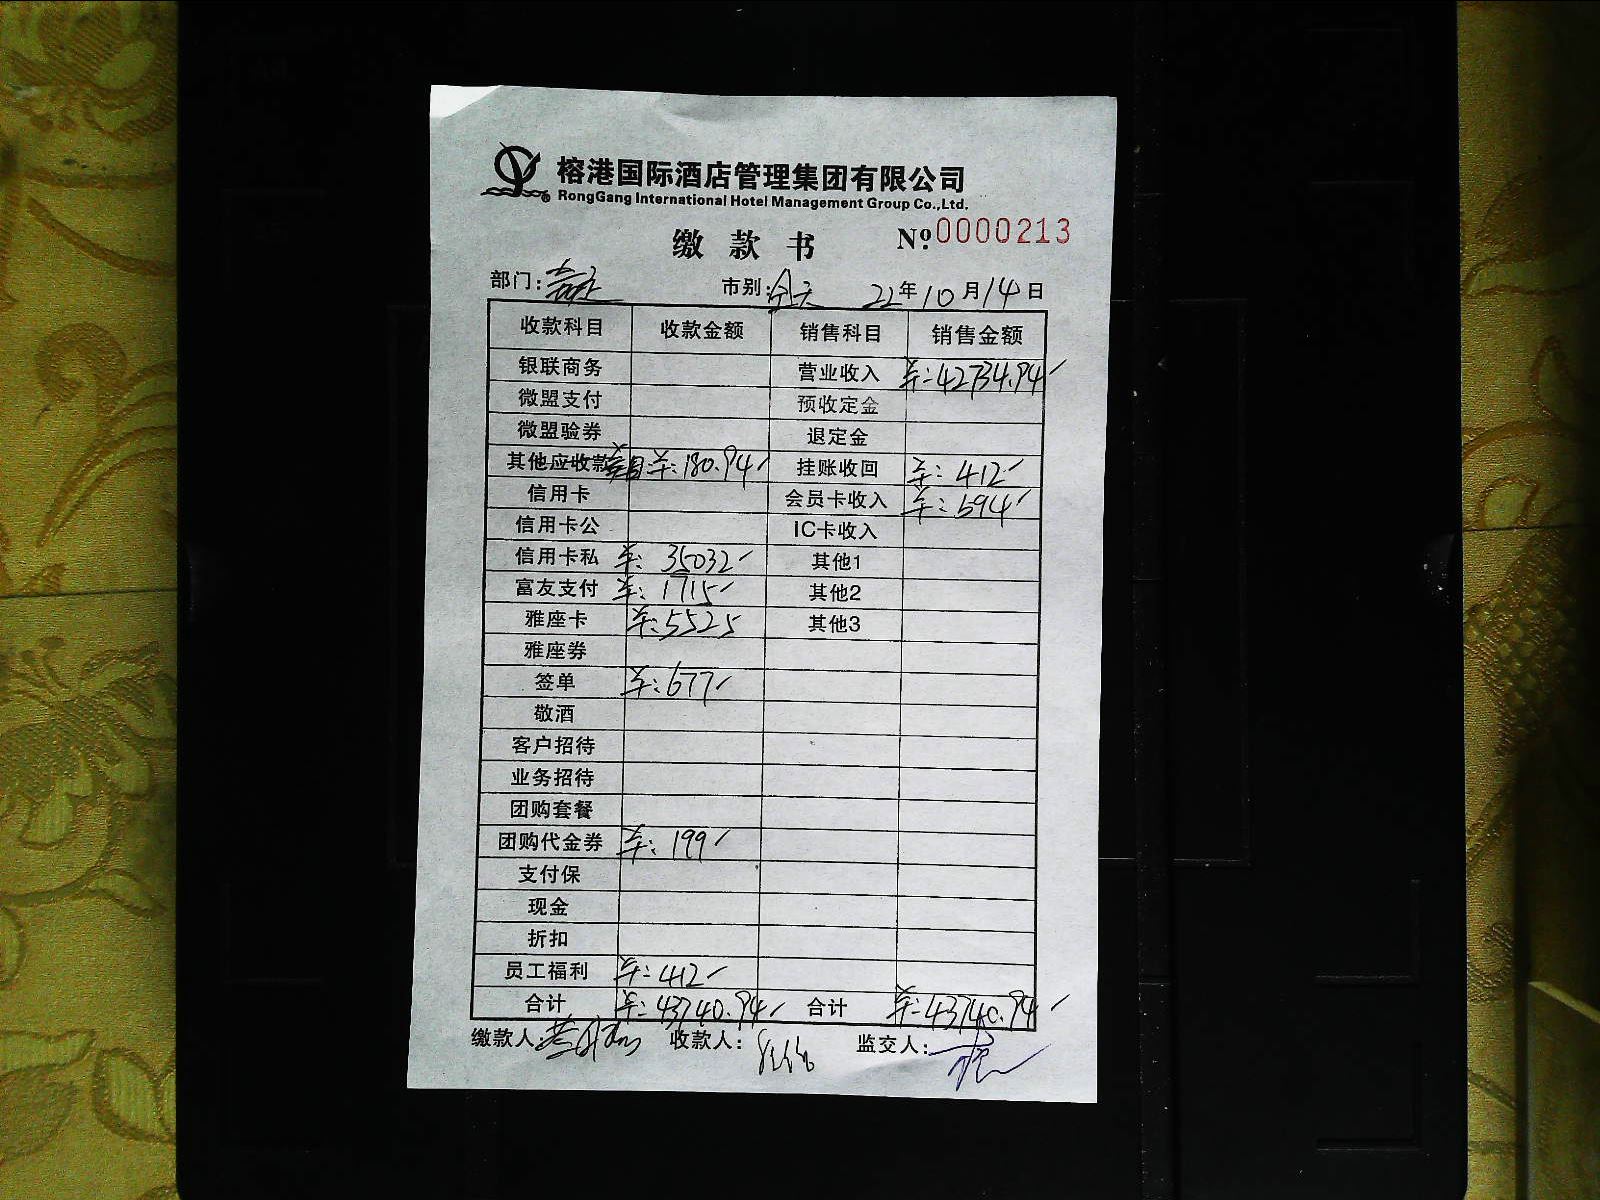 榕港国际酒店管理集团有限公司
RongGang International Hotel Management Group Co.,Ltd.
缴款书 Nº 0000213
部门: 市别:全天 22年10月14日
收款科目 收款金额 销售科目 销售金额
银联商务 营业收入 ¥:42734.94
微盟支付 预收定金
微盟验券 退定金
其他应收款 ¥:180.94 挂账收回 ¥:412
信用卡 会员卡收入 ¥:594
信用卡公 IC卡收入
信用卡私 ¥:35032 其他1
富友支付 ¥:1715 其他2
雅座卡 ¥:5525 其他3
雅座券
签单 ¥:677
敬酒
客户招待
业务招待
团购套餐
团购代金券 ¥:199
支付保
现金
折扣
员工福利 ¥:412
合计 ¥:43740.94 合计 ¥:43740.94
缴款人: 收款人: 监交人: